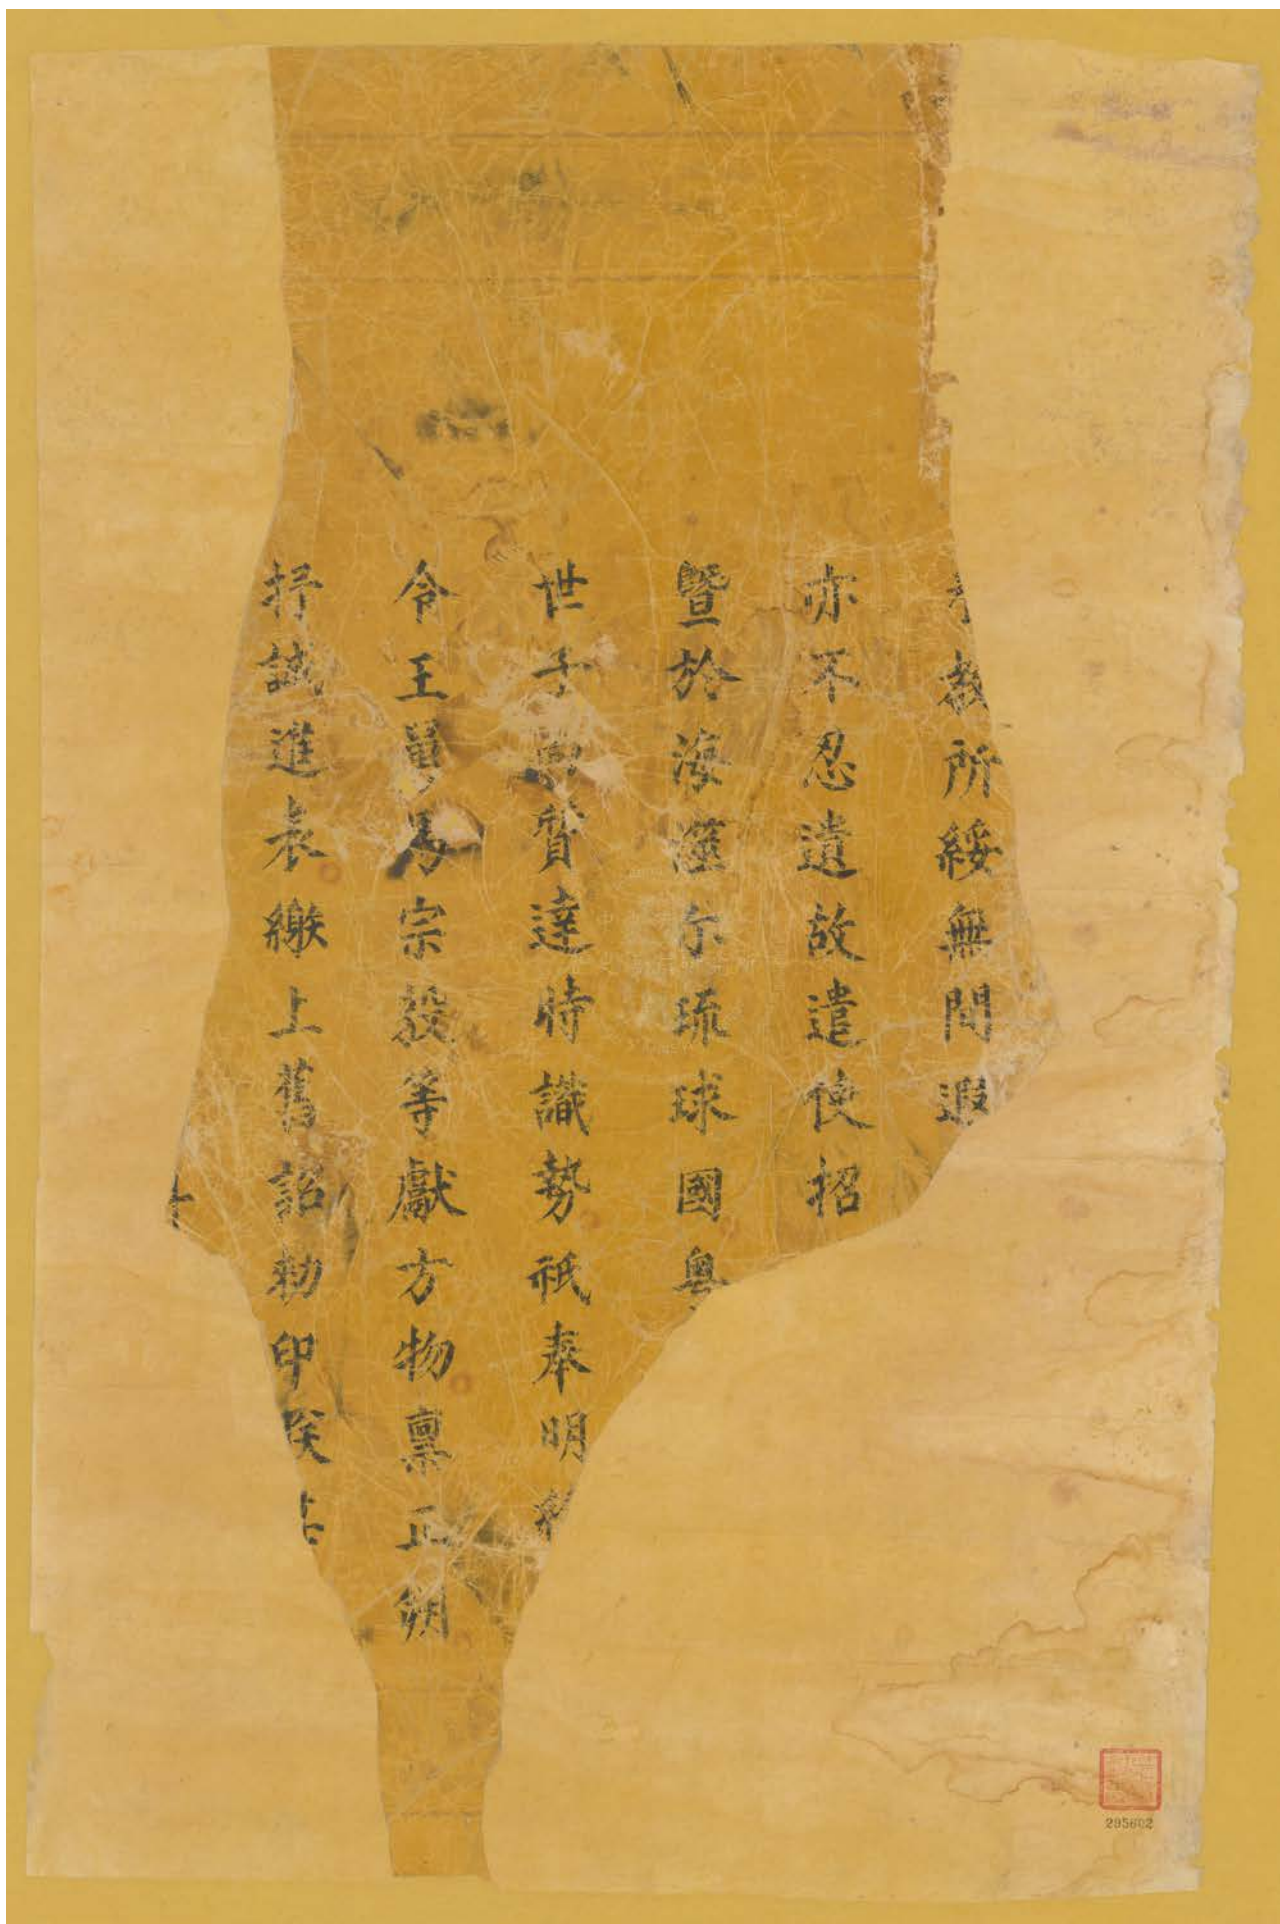 教所綏無間遐
亦不忍遺故遣使招
暨於海澨尔琉球國粤
世子尚質達時識勢祗奉明
令王舅馬宗毅等獻方物稟正朔
抒誠進表繳上舊詔勅印朕
295602